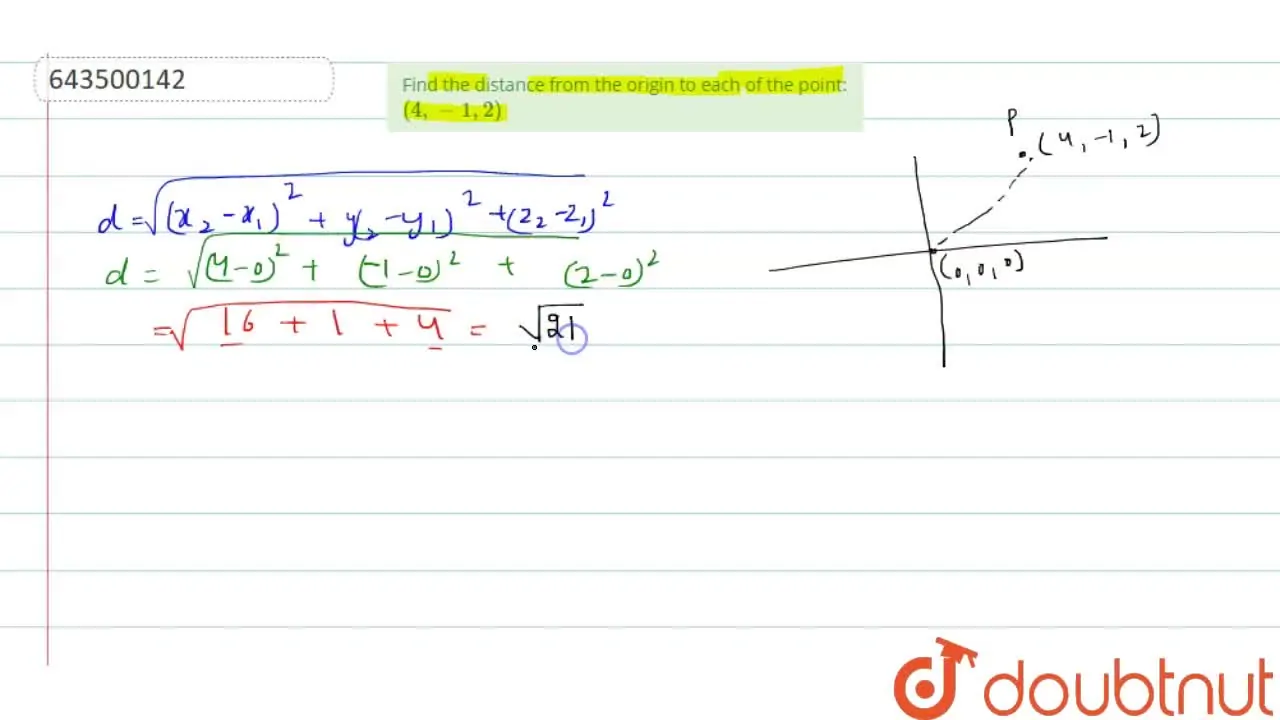 643500142
Find the distance from the origin to each of the point:
(4, −1, 2)
P
(4, -1, 2)
d = √(x₂ - x₁)² + y(₂ - y₁)² + (z₂ - z₁)²
d = √(4-0)² + (-1-0)² + (2-0)²
(0, 0, 0)
= √16 + 1 + 4 = √21
doubtnut